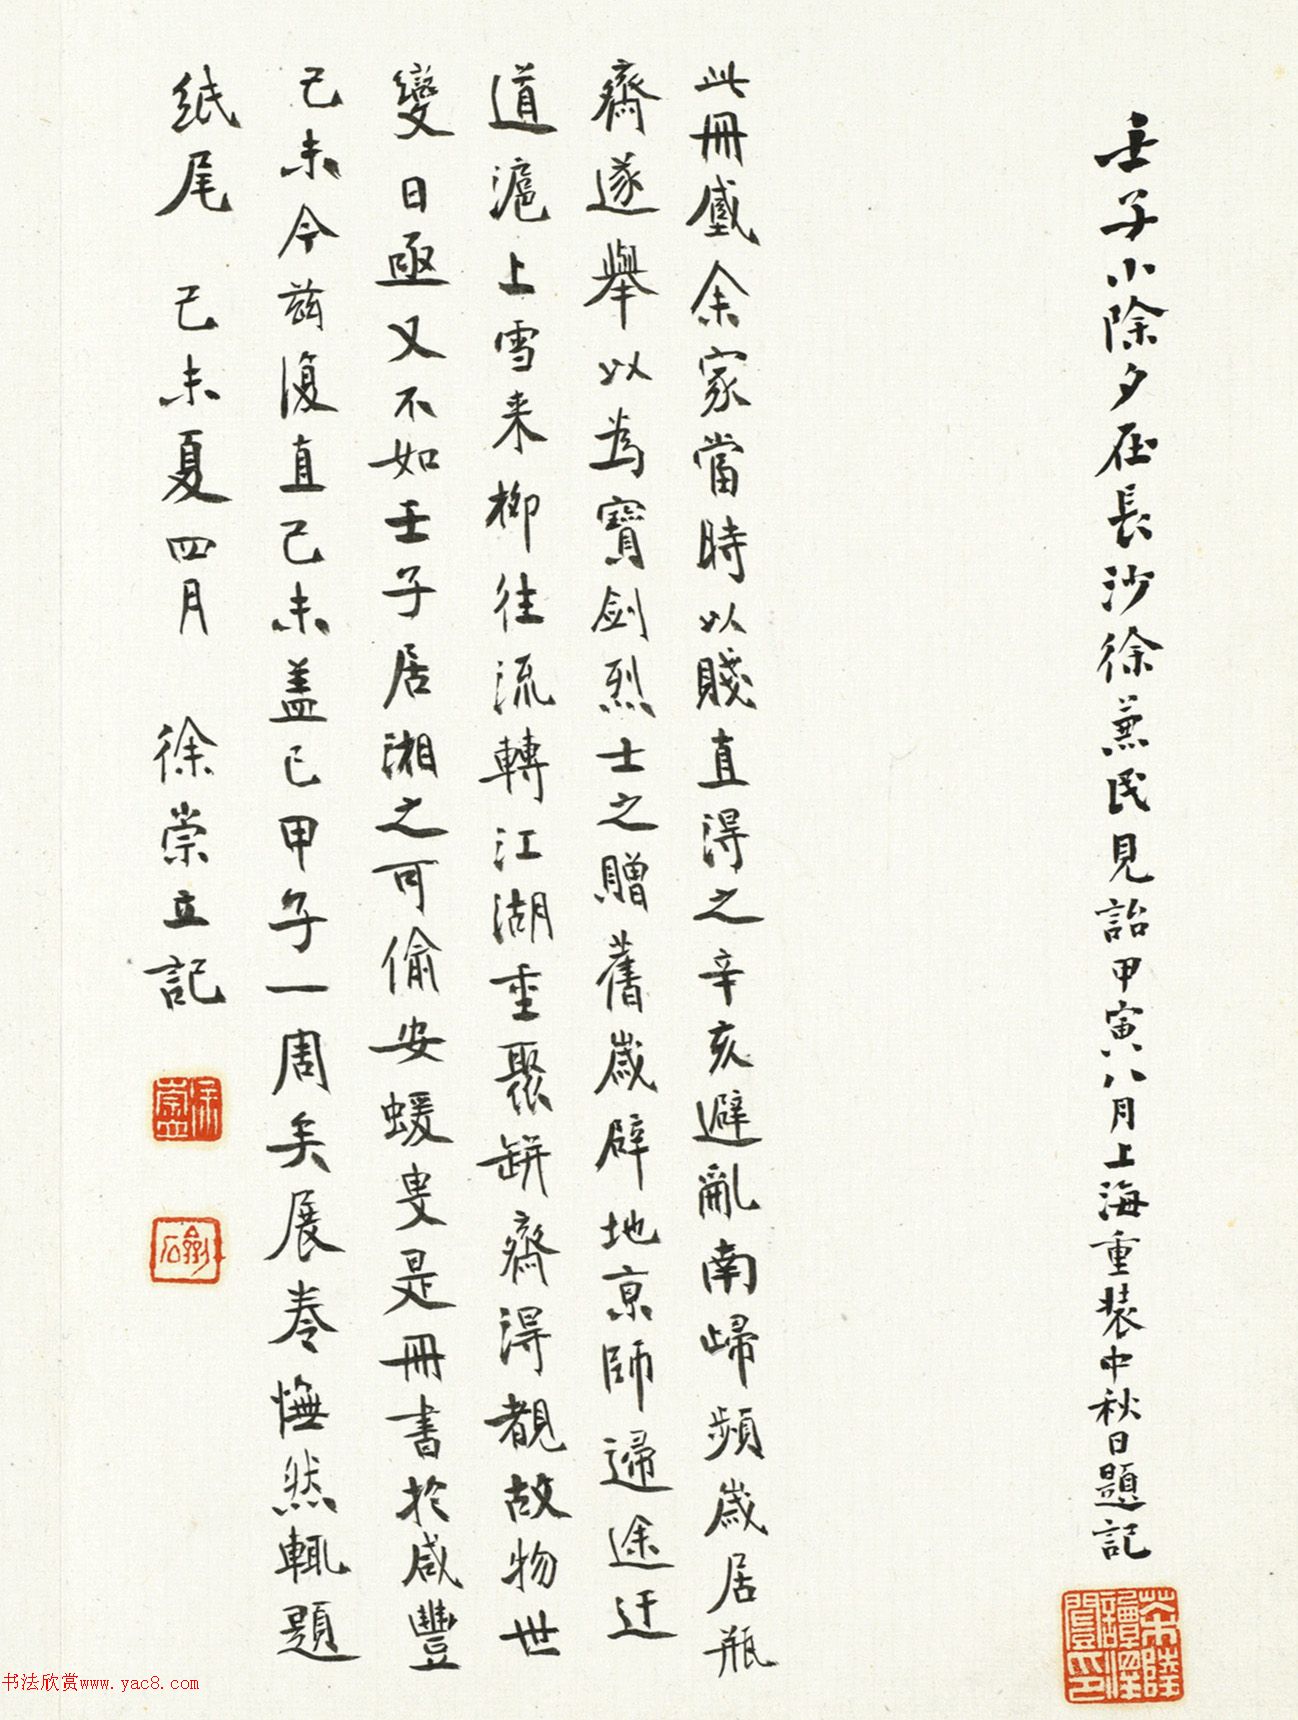 壬子小除夕在長沙徐蕪民見詒甲寅八月上海重裝中秋日題記
茶陵譚澤闓印
此冊盛余家當時以賤直得之辛亥避亂南歸頻歲居瓶
齋遂舉以為寶劍烈士之贈舊歲辟地京師還途迂
道滬上雪来柳往流轉江湖重聚缾齋得覩故物世
變日亟又不如壬子居湘之可偷安蝯叟是冊書於咸豐
己未今茲復直己未盖已甲子一周矣展卷憮然輒題
紙尾 己未夏四月 徐崇立記
徐崇立
书法欣赏www.yac8.com